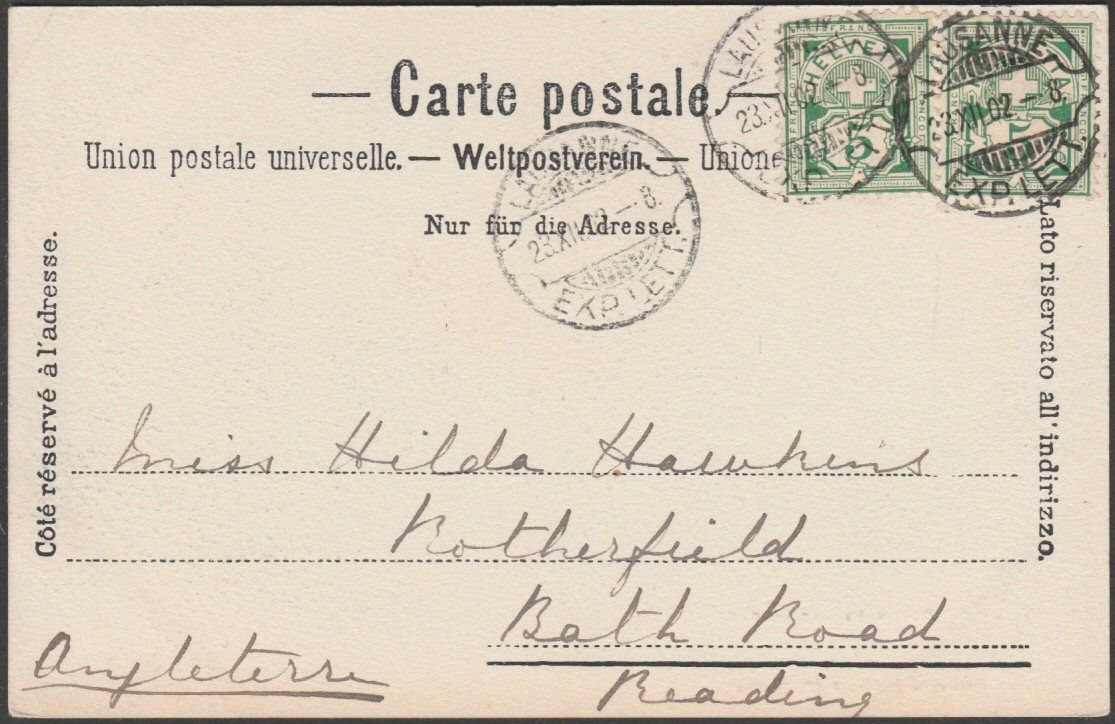 Carte postale.
Union postale universelle. — Weltpostverein. — Unione
Nur für die Adresse.
Côté réservé à l'adresse.
Lato riservato all' indirizzo.
HELVETIA
FRANCO
5
LAUSANNE
23.XII.02 — 8.
EXP. LETT.
LAUSANNE
23.XII.02 — 8.
EXP. LETT.
LAUSANNE
23.XII.02 — 8.
EXP. LETT.
Miss Hilda Hawkins
Rotherfield
Bath Road
Reading
Angleterre